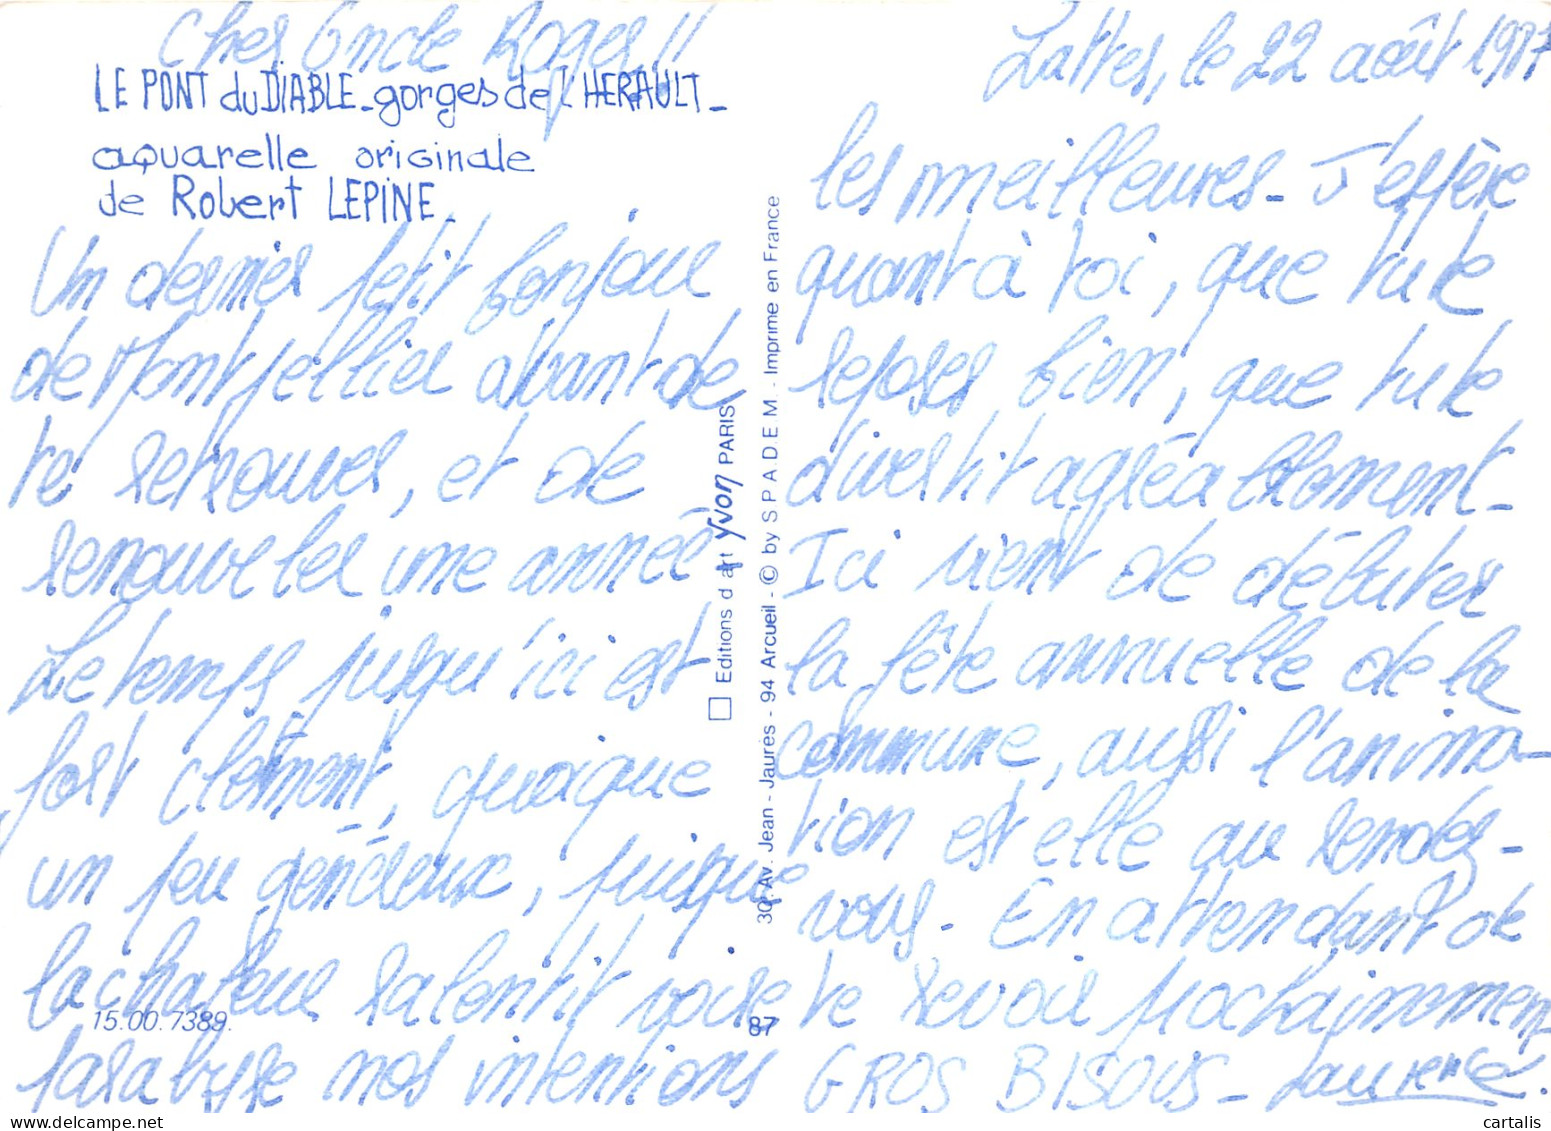 Cher Oncle Roger !!
LE PONT du DIABLE - gorges de L'HERAULT -
aquarelle originale
de Robert LEPINE.
Un dernier petit bonjour
de Montpellier avant de
te retrouver, et de
renouveler une année.
Le temps jusqu'ici est
fort clément, quoique
un peu généreux, puisque
la chaleur ralentit voire
paralyse nos intentions
Lattes, le 22 août 1987
les meilleures - J'espère
quant à toi, que tu te
reposes bien, que tu te
divertit agréablement -
Ici vient de débuter
la fête annuelle de la
commune, aussi l'anima-
tion est elle au rendez-
vous - En attendant de
te revoir prochainement
GROS BISOUS - Laurence.
Editions d'art Yvon PARIS
30. Av. Jean - Jaurès - 94 Arcueil - © by S P A D E M. - Imprimé en France
15.00.7389.
87
cartalis